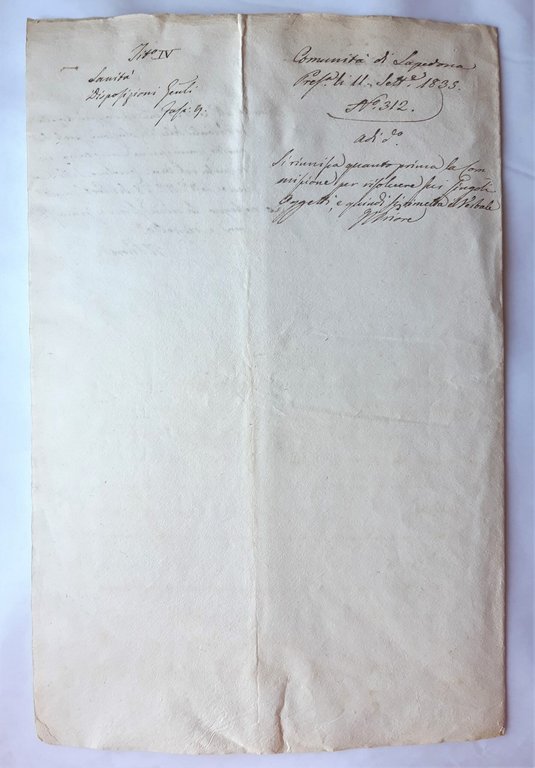 Tit.o IV
Sanità
Disposizioni Genli
Fasc. 9.
Comunità di Lapedona
Pres.a li 11. Sett.e 1835.
N.o 312.
adi d.o
Si riunisca quanto prima la Com
missione per risolvere sui singoli
Oggetti, e quindi si rimetta il Verbale
Il Priore